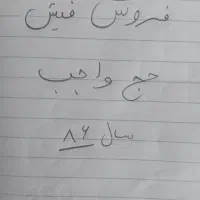 فروش فیش
حج واجب
سال ۸۶